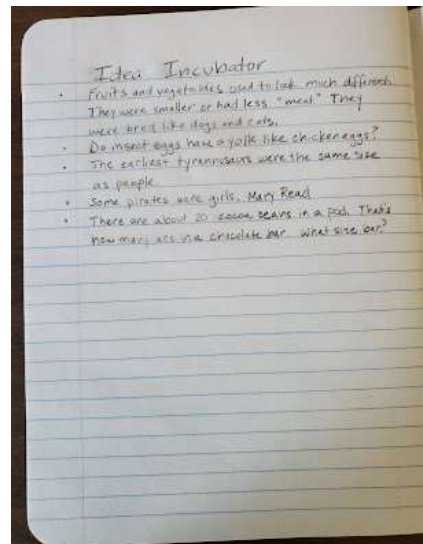 Idea Incubator
• Fruits and vegetables used to look much different.
They were smaller or had less "meat" They
were bred like dogs and cats.
• Do insect eggs have a yolk like chicken eggs?
• The earliest tyrannosaurs were the same size
as people.
• Some pirates were girls, Mary Read
• There are about 20 cocoa beans in a pod. That's
how many are in a chocolate bar. What size bar?